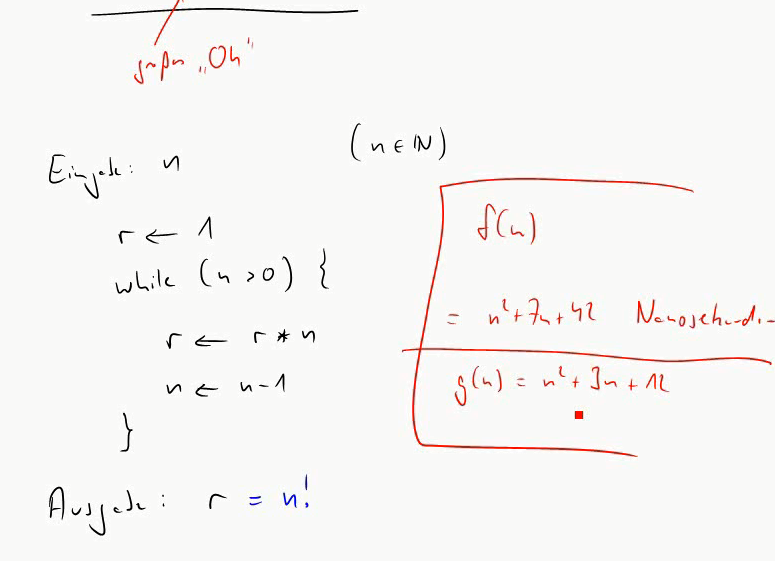 großes „Oh“
Eingabe: n (n ∈ ℕ)
r ← 1
while (n > 0) {
r ← r * n
n ← n-1
}
Ausgabe: r = n!
f(n)
= n² + 7n + 42 Nanosekunden
g(n) = n² + 3n + 12